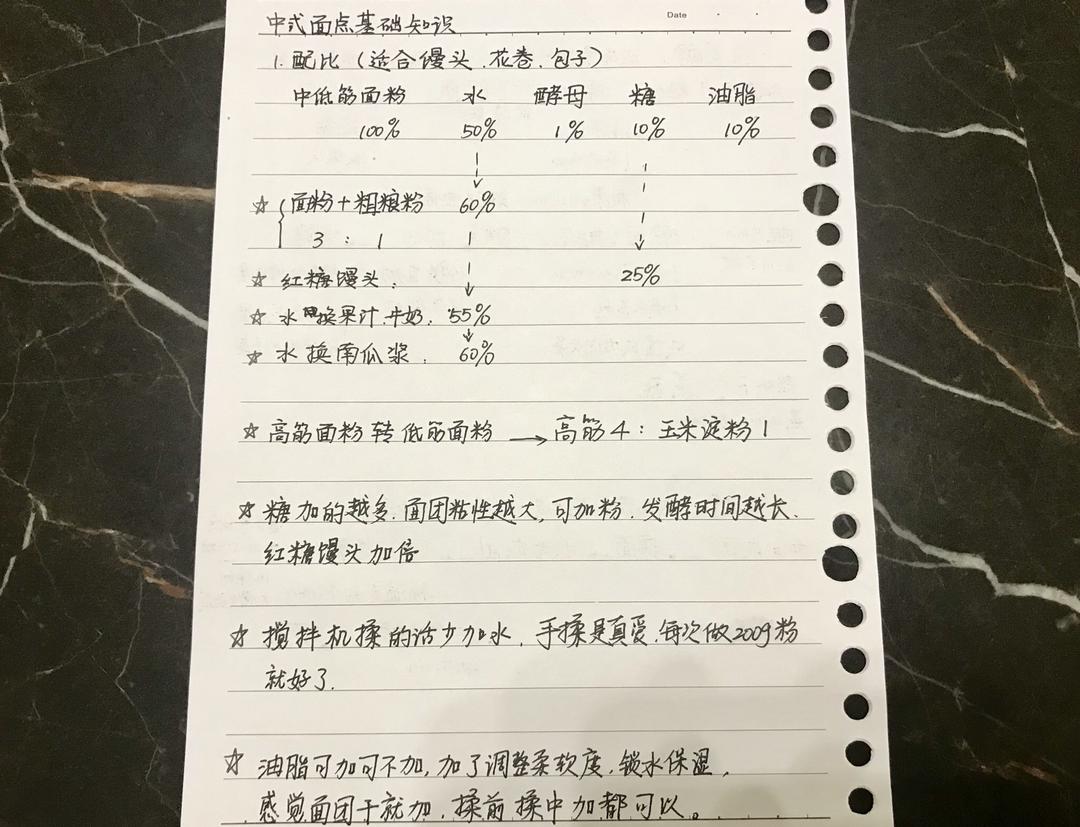 Date
中式面点基础知识
1. 配比（适合馒头、花卷、包子）
中低筋面粉 水 酵母 糖 油脂
100% 50% 1% 10% 10%
☆ 面粉+粗粮粉 60%
3 : 1
☆ 红糖馒头： 25%
☆ 水换果汁、牛奶. 55%
☆ 水换南瓜浆. 60%
☆ 高筋面粉转低筋面粉 → 高筋4：玉米淀粉1
☆ 糖加的越多.面团粘性越大,可加粉.发酵时间越长、
红糖馒头加倍
☆ 搅拌机揉的话少加水，手揉是真爱.每次做200g粉
就好了.
☆ 油脂可加可不加,加了调整柔软度.锁水保湿，
感觉面团干就加.揉前揉中加都可以。